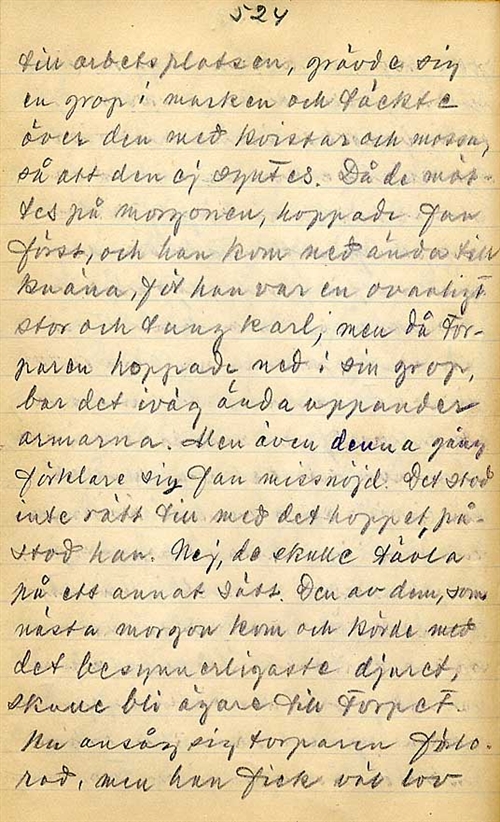 524
till arbetsplatsen, grävde sig
en grop i marken och täckte
över den med kvistar och mossa,
så att den ej syntes. Då de möt-
tes på morgonen, hoppade fan
först, och han kom ned ända till
knäna, för han var en ovanligt
stor och tung karl; men då Tor-
paren hoppade ned i sin grop,
bar det iväg ända uppunder
armarna. Men även denna gång
förklare sig fan missnöjd. Det stod
inte rätt till med det hoppet, på-
stod han. Nej, de skulle tävla
på ett annat sätt. Den av dem, som
nästa morgon kom och körde med
det besynnerligaste djuret,
skulle bli ägare till Torpet.
Nu ansåg sig torparen förlo-
rad, men han fick väl lov